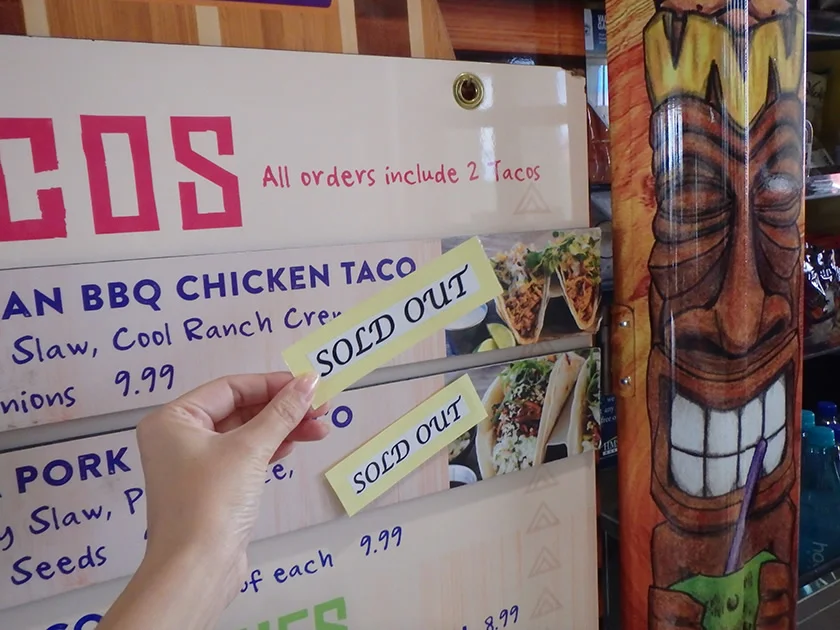 COS All orders include 2 Tacos
AN BBQ CHICKEN TACO
Slaw, Cool Ranch
nions 9.99
SOLD OUT
PORK
Slaw,
Seeds
SOLD OUT
of each 9.99
8.99